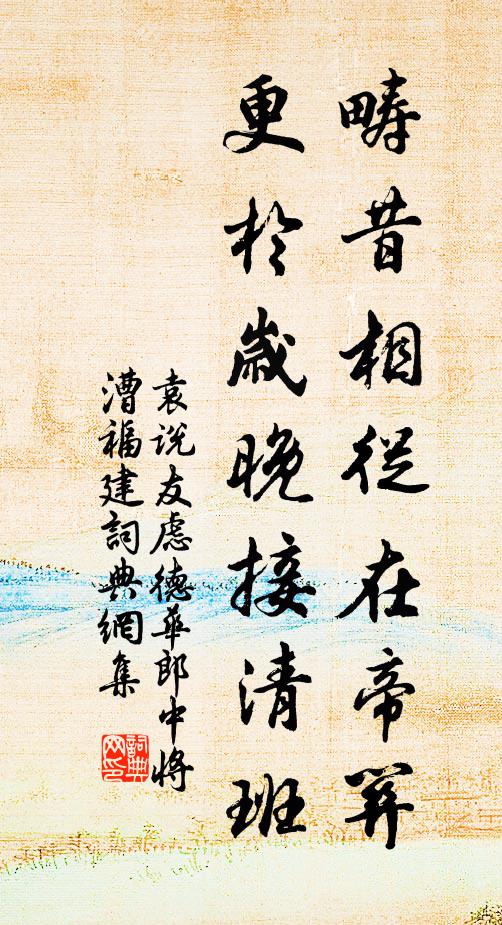 疇昔相從在帝
更於歲晚接清班
袁說友慮德華郎中將
漕福建詞典網集
詞典网印